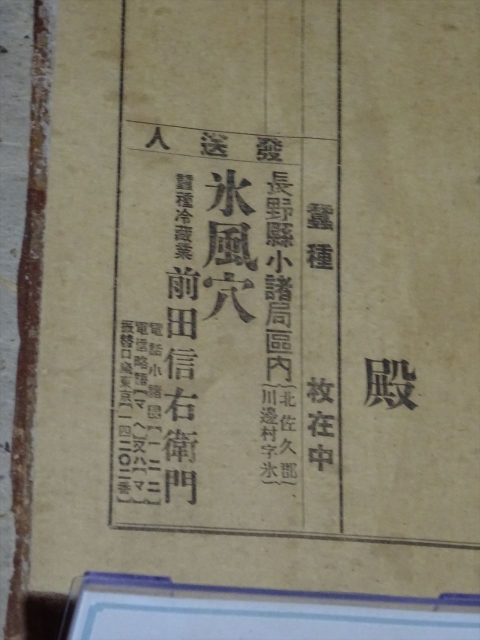 殿
蠶種　枚在中
發送人
長野縣小諸局區内(北佐久郡川邊村字氷)
氷風穴
蠶種冷藏業
前田信右衛門
電話小諸局【一二二】
電信略語【マヘ】又ハ【マ】
振替口座東京【一四二〇二番】